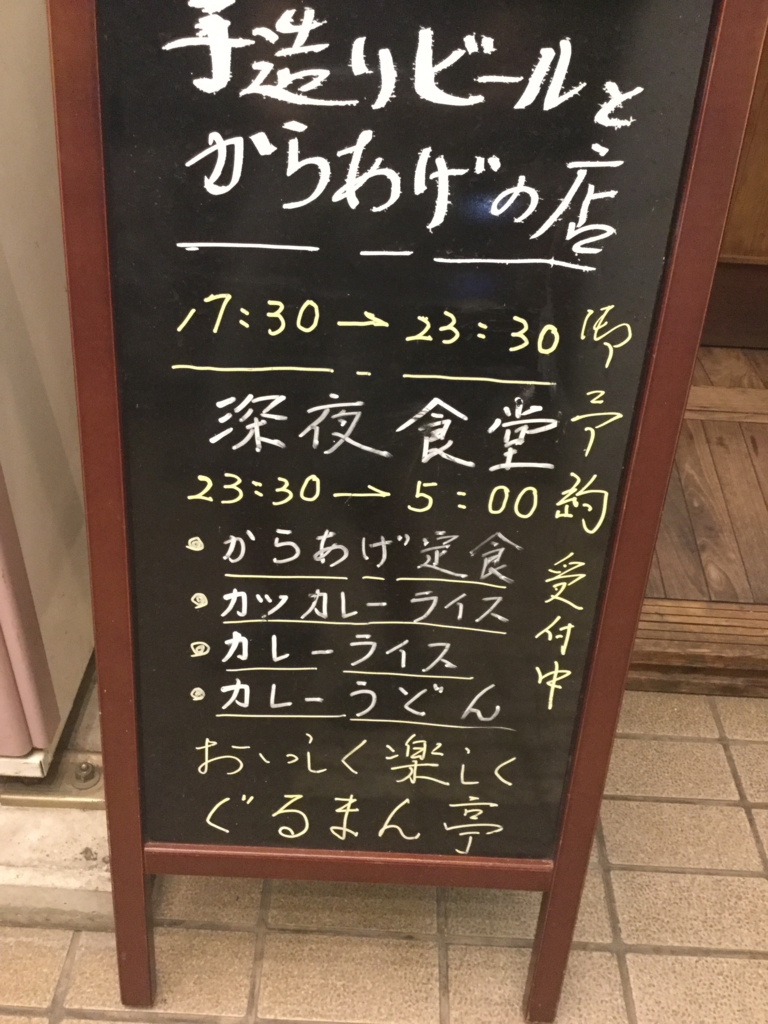 手造りビールと
からあげの店
17:30→23:30
深夜食堂
23:30→5:00
・からあげ定食
・カツカレーライス
・カレーライス
・カレーうどん
おいしく楽しく
ぐるまん亭
御予約受付中